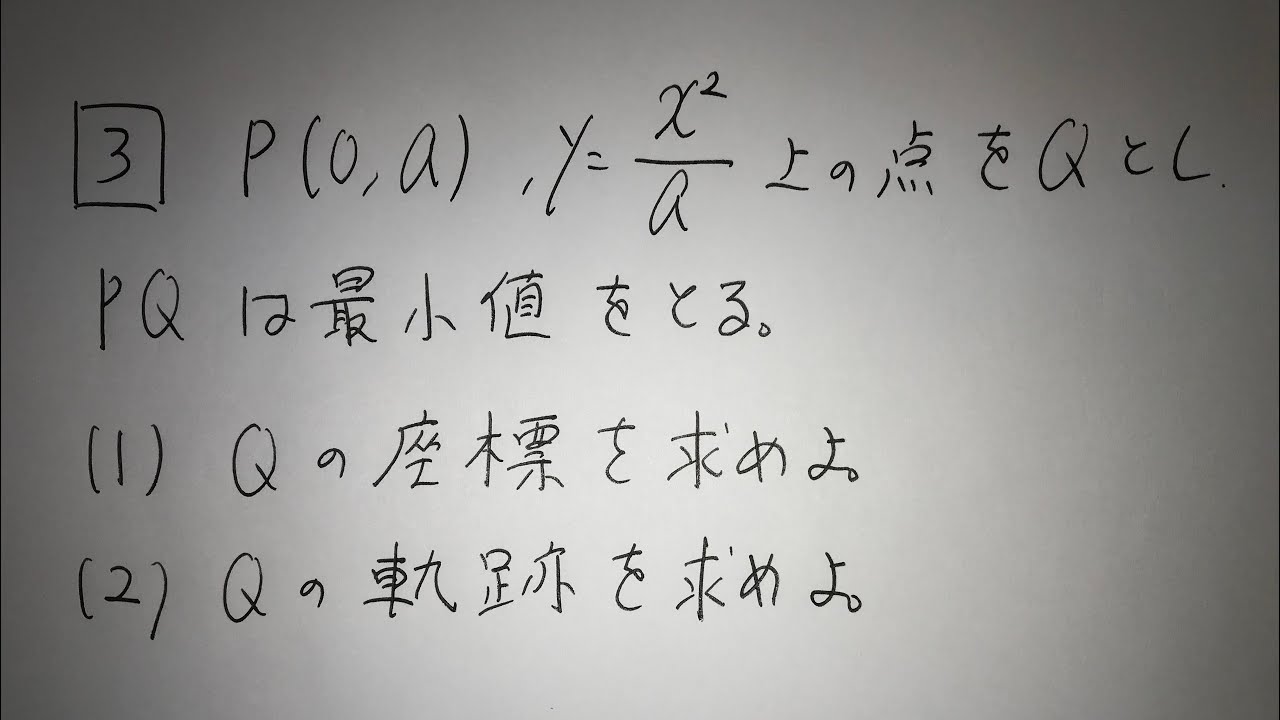 3 P(0, a), y = x²/a 上の点をQとし.
PQは最小値をとる。
(1) Qの座標を求めよ。
(2) Qの軌跡を求めよ。